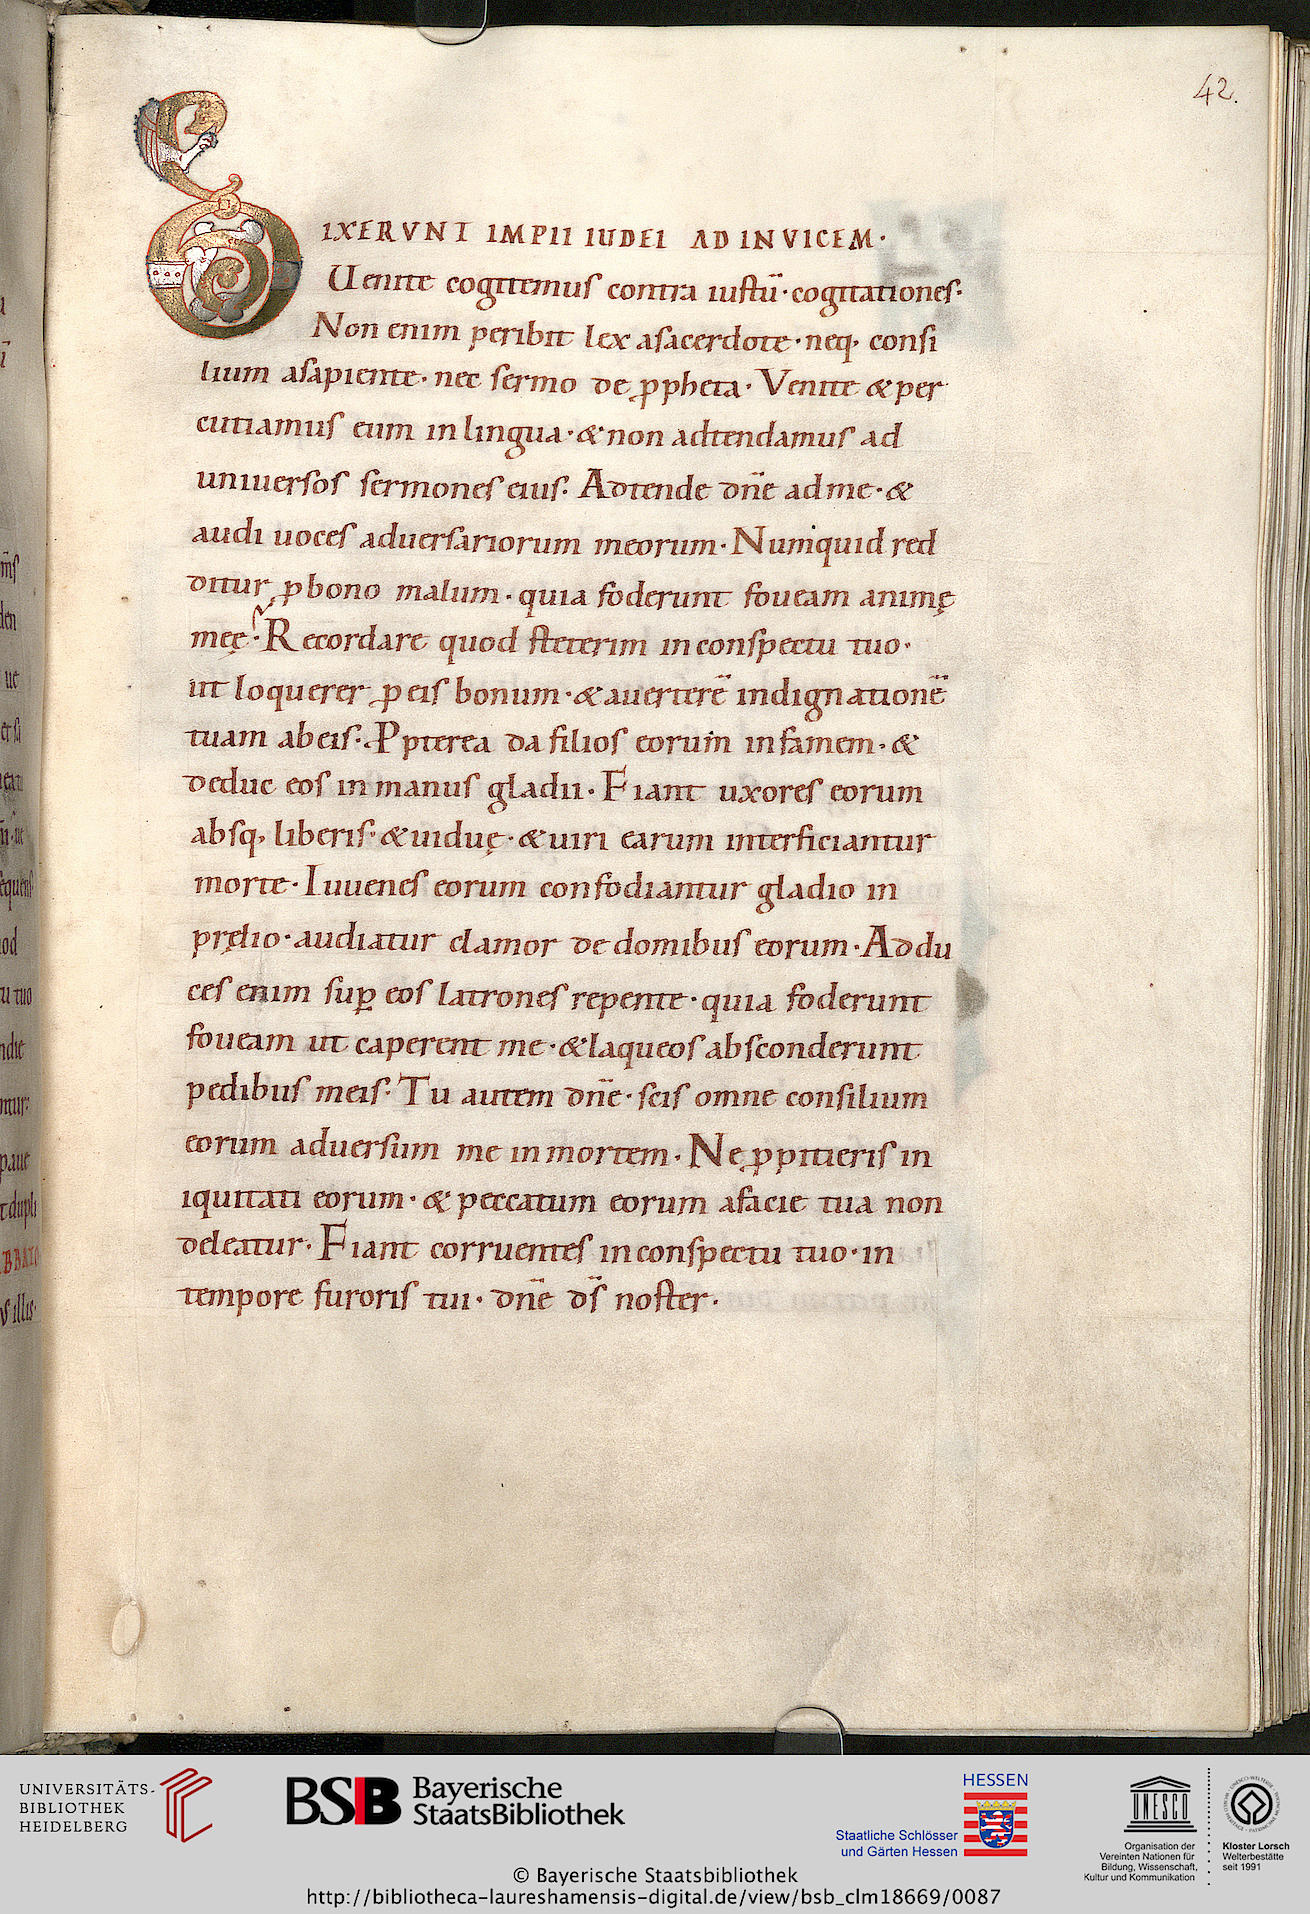 42.
DIXERVNT IMPII IUDEI AD INVICEM·
Uenite cogitemus contra iustū· cogitationes·
Non enim peribit lex asacerdote· neq; consi
lium asapiente· nec sermo de ꝓpheta· Venite & per
cutiamus eum in lingua· & non adtendamus ad
uniuersos sermones eius· Adtende dn̄e ad me· &
audi uoces aduersariorum meorum· Numquid red
ditur ꝓ bono malum· quia foderunt foueam animę
meę· Recordare quod steterim in conspectu tuo·
ut loquerer ꝓ eis bonum· & auerterē indignationē
tuam ab eis· Ꝓpterea da filios eorum in famem· &
deduc eos in manus gladii· Fiant uxores eorum
absq; liberis· & uiduę· & uiri earum interficiantur
morte· Iuuenes eorum confodiantur gladio in
pręlio· audiatur clamor de domibus eorum· Addu
ces enim suꝑ eos latrones repente· quia foderunt
foueam ut caperent me· & laqueos absconderunt
pedibus meis· Tu autem dn̄e· scis omne consilium
eorum aduersum me in mortem· Ne ꝓpitieris in
iquitati eorum· & peccatum eorum afacie tua non
deleatur· Fiant corruentes in conspectu tuo· in
tempore furoris tui· dn̄e ds̄ noster·
UNIVERSITÄTS-
BIBLIOTHEK
HEIDELBERG
BSB Bayerische
StaatsBibliothek
HESSEN
Staatliche Schlösser
und Gärten Hessen
UNESCO
Organisation der
Vereinten Nationen für
Bildung, Wissenschaft,
Kultur und Kommunikation
Kloster Lorsch
Welterbestätte
seit 1991
© Bayerische Staatsbibliothek
http://bibliotheca-laureshamensis-digital.de/view/bsb_clm18669/0087